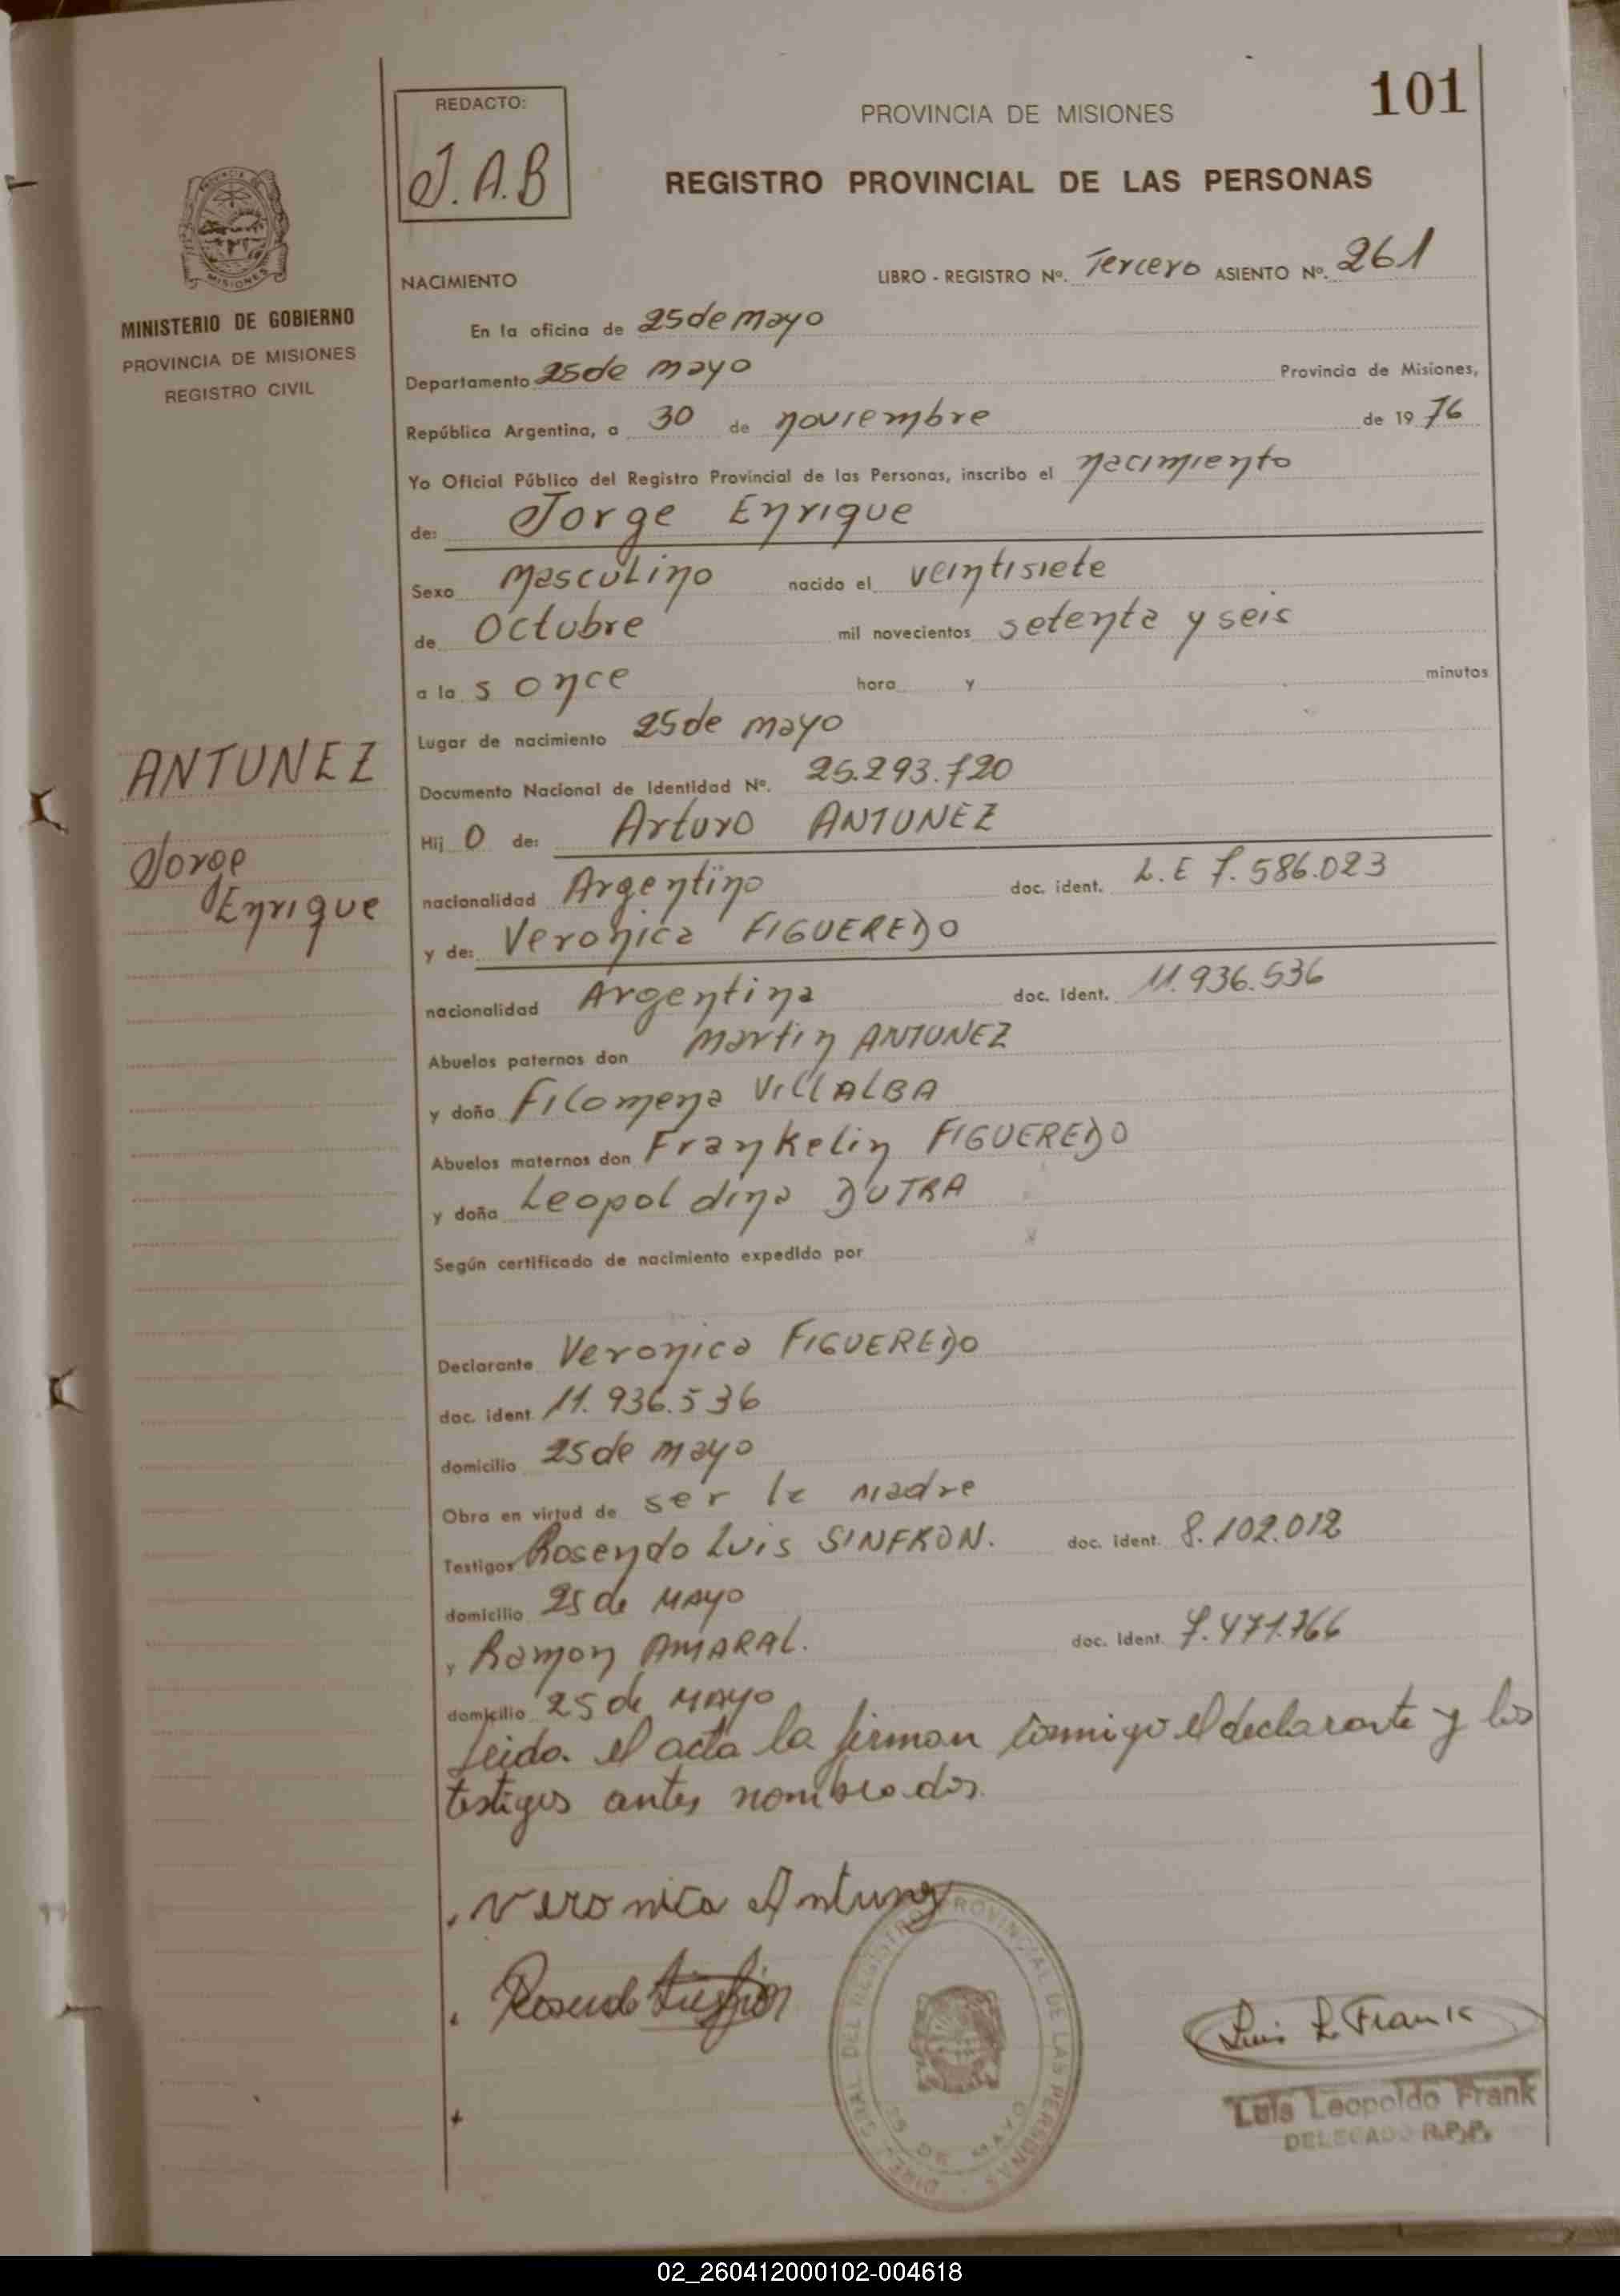 101
REDACTO:
J.A.B
PROVINCIA DE MISIONES
REGISTRO PROVINCIAL DE LAS PERSONAS
MINISTERIO DE GOBIERNO
PROVINCIA DE MISIONES
REGISTRO CIVIL
NACIMIENTO LIBRO - REGISTRO Nº. Tercero ASIENTO Nº. 261
En la oficina de 25 de mayo
Departamento 25 de mayo Provincia de Misiones,
República Argentina, a 30 de noviembre de 19 76
Yo Oficial Público del Registro Provincial de las Personas, inscribo el nacimiento
de: Jorge Enrique
Sexo masculino nacido el veintisiete
de Octubre mil novecientos setenta y seis
a la s once hora y minutos
Lugar de nacimiento 25 de mayo
ANTUNEZ
Jorge
Enrique
Documento Nacional de Identidad Nº. 25.293.720
Hij o de: Arturo ANTUNEZ
nacionalidad Argentino doc. ident. L.E 7.586.023
y de: Veronica FIGUEREDO
nacionalidad Argentina doc. ident. 11.936.536
Abuelos paternos don Martin ANTUNEZ
y doña Filomena VILLALBA
Abuelos maternos don Frankelin FIGUEREDO
y doña Leopoldina DUTRA
Según certificado de nacimiento expedido por
Declarante Veronica FIGUEREDO
doc. ident 11.936.536
domicilio 25 de mayo
Obra en virtud de ser la madre
Testigos Rosendo Luis doc. ident. 8.102.012
domicilio 25 de MAYO
y Ramon AMARAL. doc. ident. 7.471.766
domicilio 25 de MAYO
Leido el acta la firman conmigo el declarante y los
testigos antes nombrados.
Veronica Antunez
Rosendo
DIREC. GRAL. DEL REGISTRO PROVINCIAL DE LAS PERSONAS
25 DE MAYO
Luis L. Frank
Luis Leopoldo Frank
DELEGADO R.P.P.
02_260412000102-004618